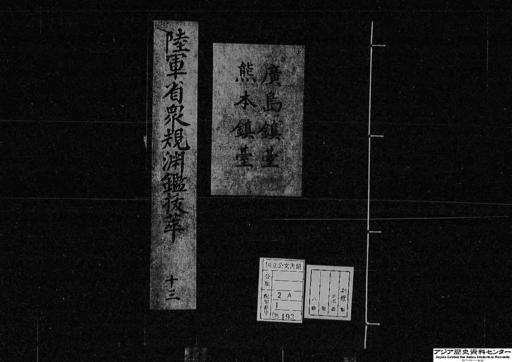 廣島鎮臺
熊本鎮臺
陸軍省衆規淵鑑抜萃
十三
国立公文書館
分類
2 A
1
193
アジア歴史資料センター
Japan Center for Asian Historical Records